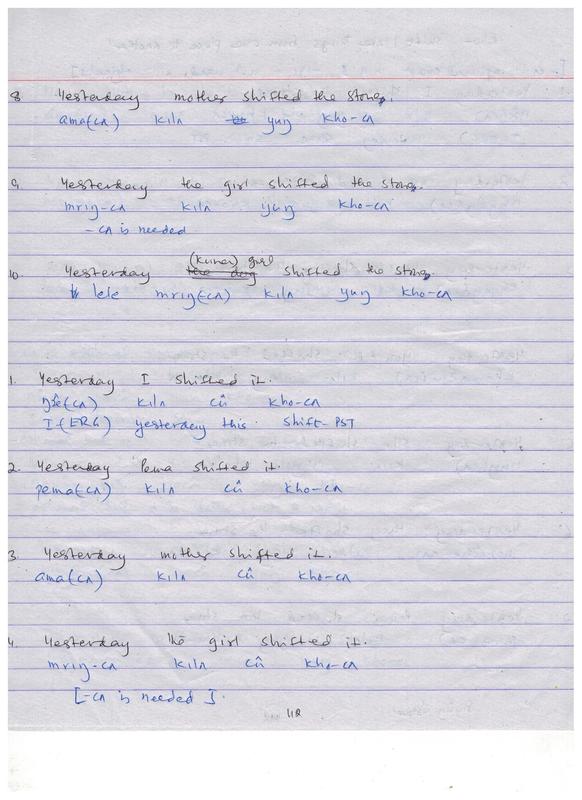 8 Yesterday mother shifted the stones.
ama(cʌ) kilʌ yuŋ kho-cʌ
9 Yesterday the girl shifted the stones.
mriŋ-cʌ kilʌ yuŋ kho-cʌ
-cʌ is needed
(Kumar) girl
10 Yesterday the dog shifted the stones.
lese mriŋ(-cʌ) kilʌ yuŋ kho-cʌ
1. Yesterday I shifted it.
ŋʌ̂(cʌ) kilʌ cû kho-cʌ
I(ERG) yesterday this shift-PST
2. Yesterday Pema shifted it.
pema(-cʌ) kilʌ cû kho-cʌ
3. Yesterday mother shifted it.
ama(cʌ) kilʌ cû kho-cʌ
4. Yesterday the girl shifted it.
mriŋ-cʌ kilʌ cû kho-cʌ
[-cʌ is needed].